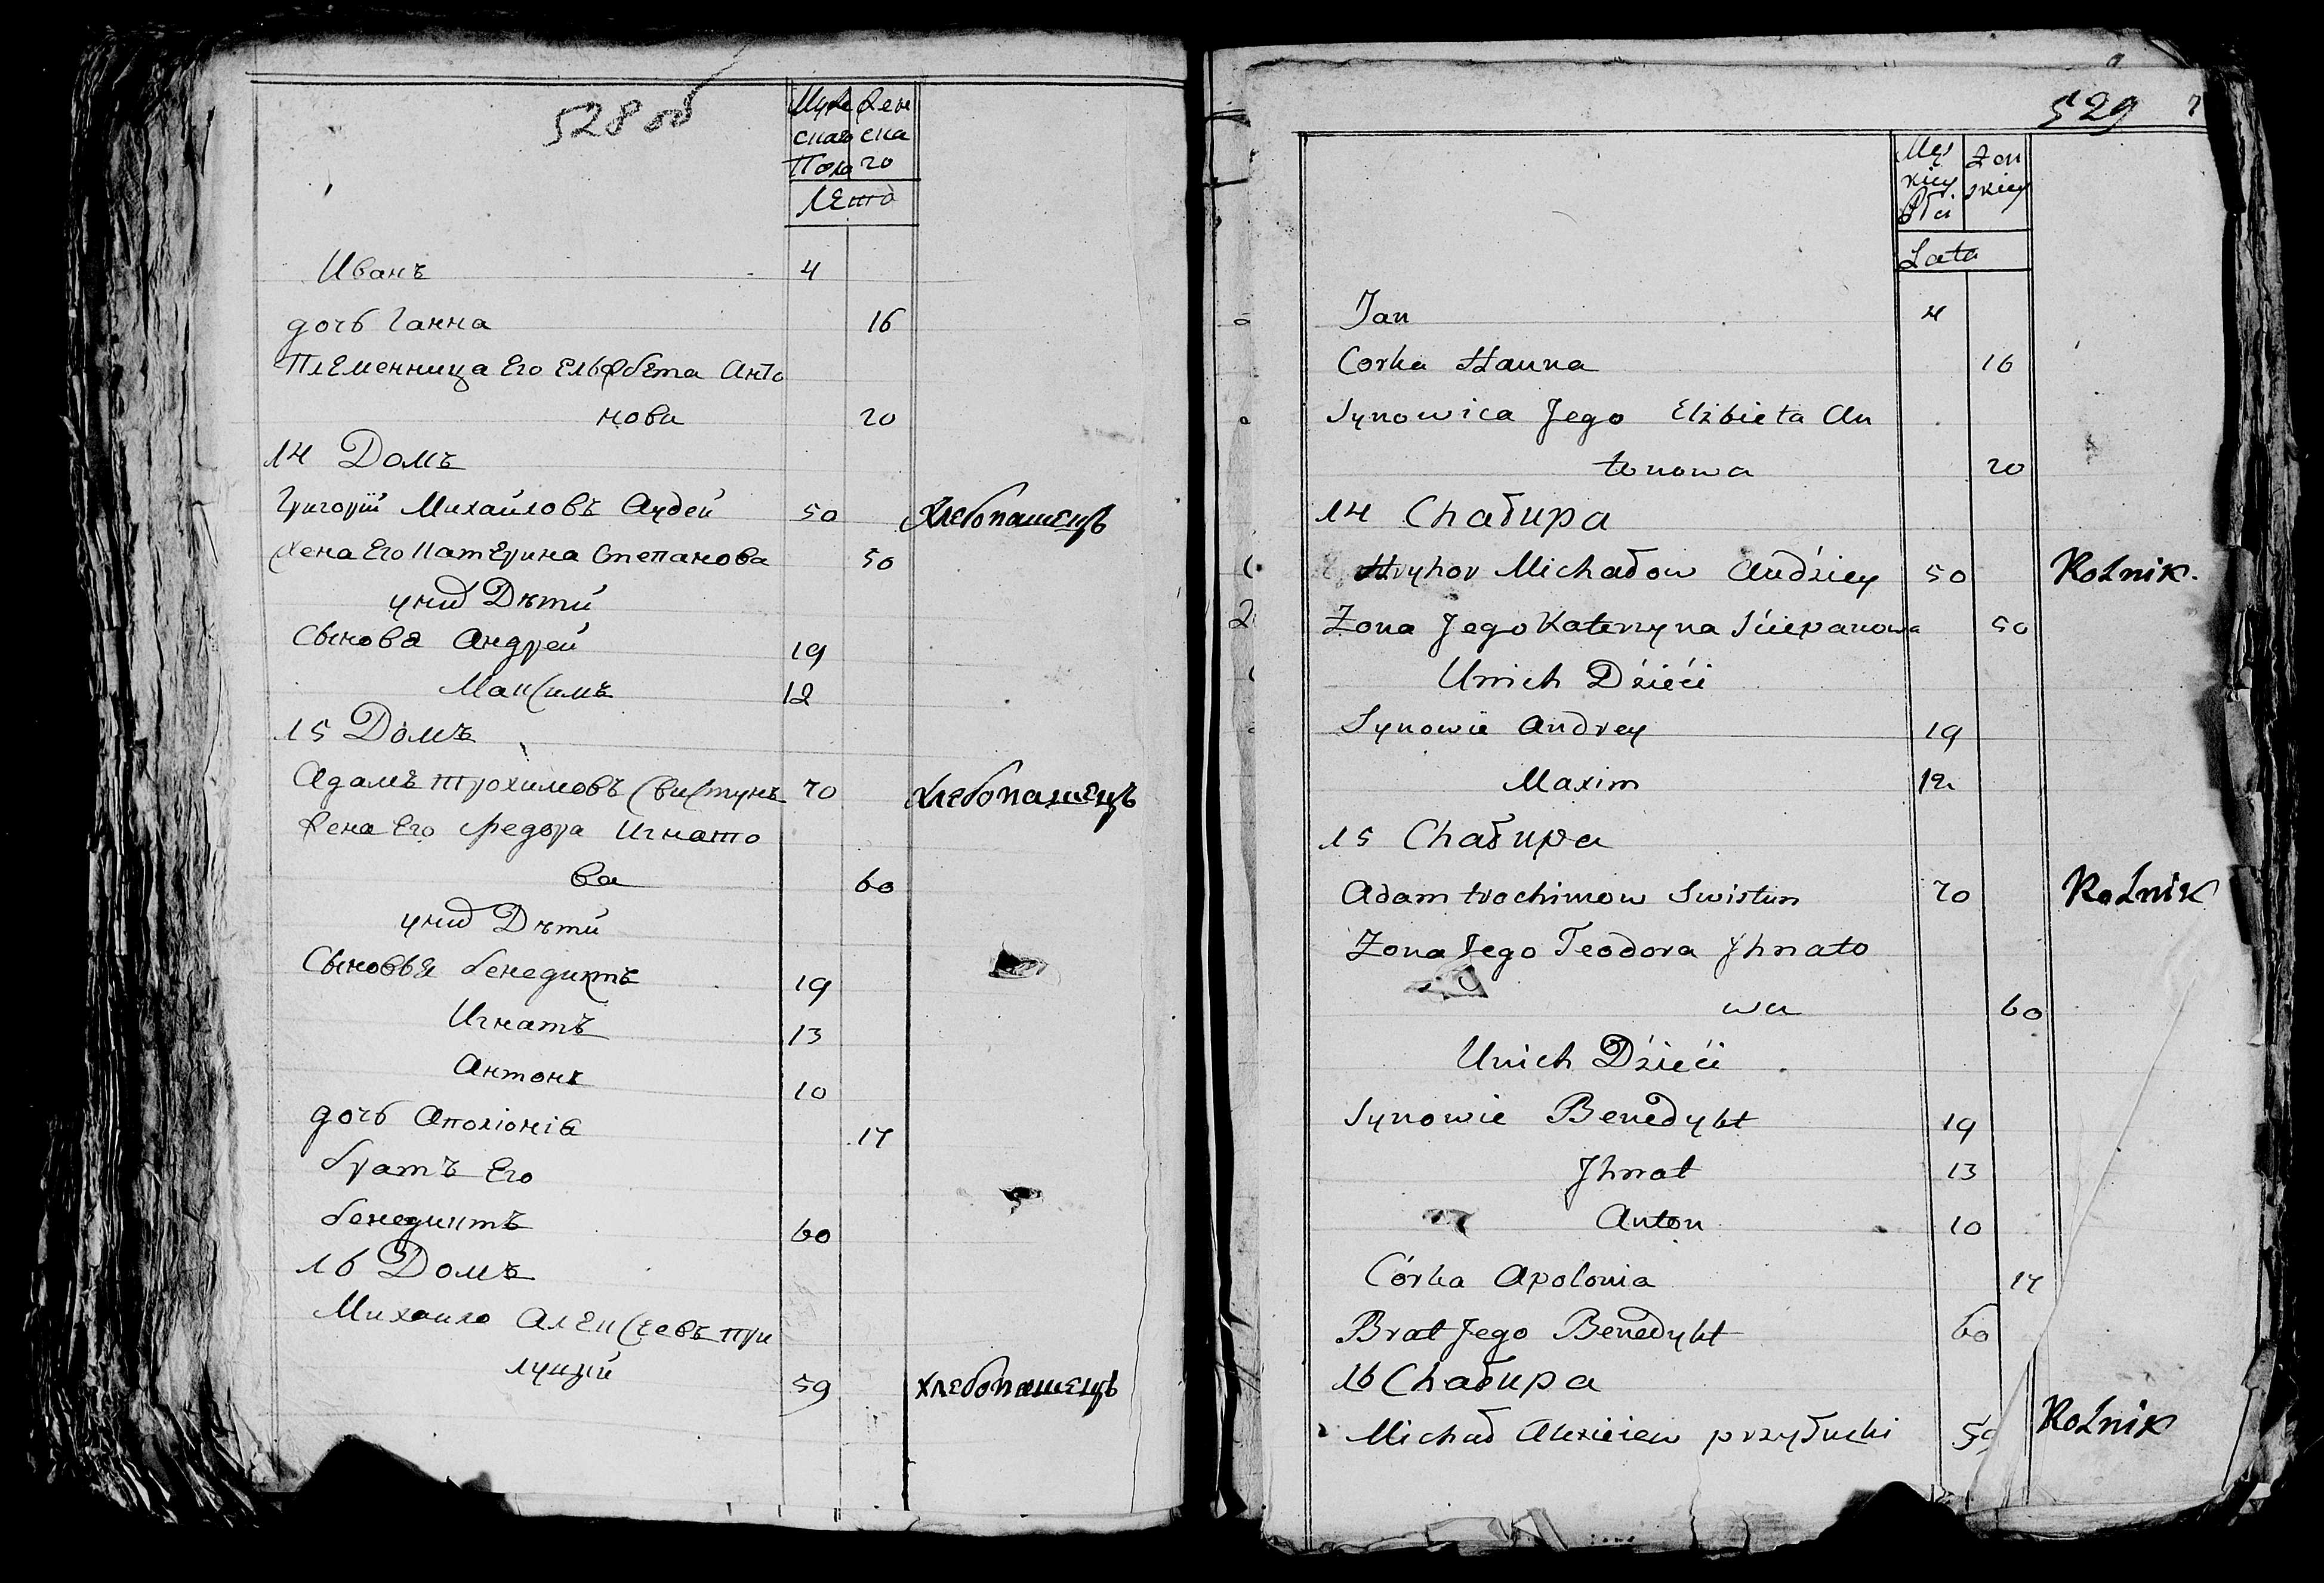 528 об
Муже Жен
скаго ска
Пола го
Лето
Иванъ 4
дочь Ганна 16
Племенница Его Ельжбета Анто
нова 20
14 Домъ
Григорiй Михайловъ Аудей 50 Хлебопашецъ
Жена Его Катерина Степанова 50
унид Дѣти
Сынова Андрей 19
Максимъ 12
15 Домъ
Адамъ Трохимовъ Свистунъ 70 Хлебопашецъ
Жена Его Федора Игнато
ва 60
унид Дѣти
Сыновья Бенедиктъ 19
Игнатъ 13
Антонъ 10
дочь Аполiонiя 17
братъ Его
бенедиктъ 60
16 Домъ
Михайло Алексеевъ при
луцкiй 59 хлебопашецъ
529
Męs Zon
kiey skiey
Płci
Lata
Jan 4
Corka Hanna 16
Synowica Jego Elżbieta An
tonowa 20
14 Chałupa
Hryhor Michałow Audziey 50 Rolnik.
Zona Jego Katerzyna Sciepanowa 50
Unich Dzieći
Synowie Andrey 19
Maxim 12
15 Chałupa
Adam trochimow Swistun 70 Rolnik
Zona Jego Teodora Jhnato
wa 60
Unich Dzieći
Synowie Benedykt 19
Jhnat 13
Anton 10
Córka Apolonia 17
Brat Jego Benedykt 60
16 Chałupa
Michał Alexieiew przyłucki 59 Rolnik